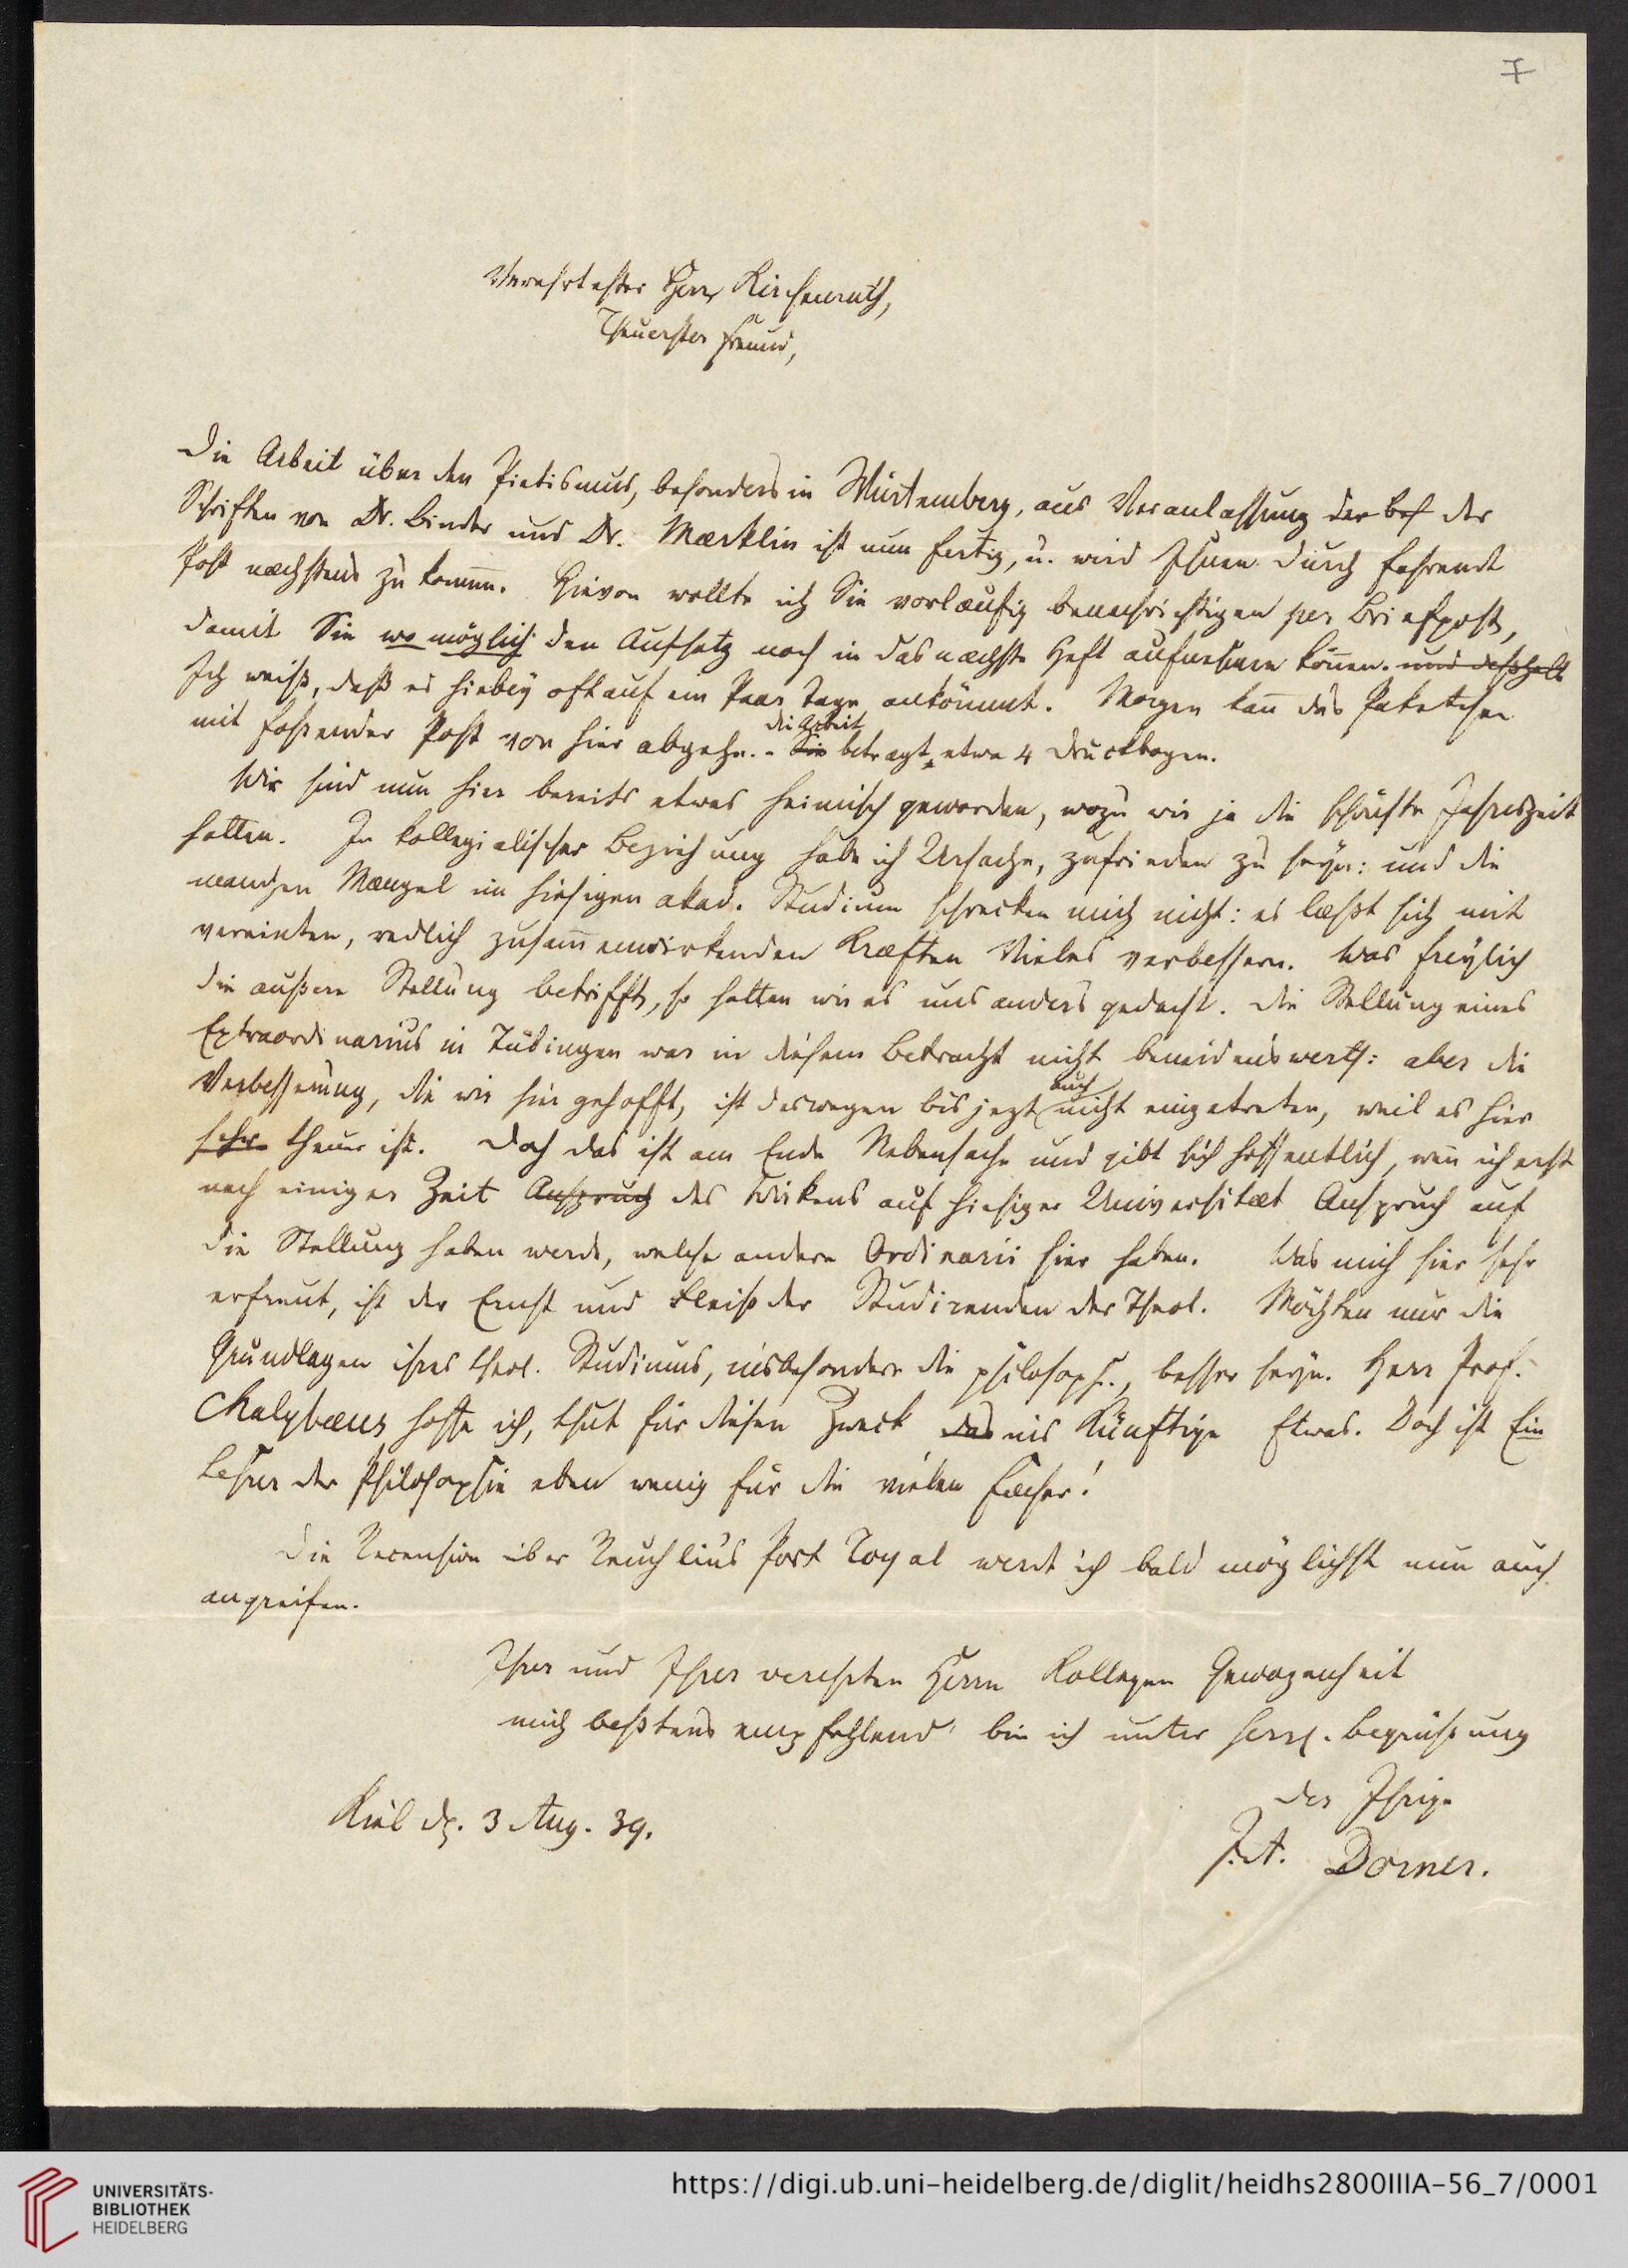 7
Verehrtester Herr Kirchenrath,
Theuerster Freund,
Die Arbeit über den Pietismus, besonders in Würtemberg, aus Veranlassung der bes der
Schriften von Dr. Binder und Dr. Mærklin ist nun fertig, u. wird Ihnen durch fahrende
Post næchstens zukommen. Hievon wollte ich Sie vorlæufig benachrichtigen per Briefpost,
damit Sie wo möglich den Aufsatz noch in das næchste Heft aufnehmen können. und deßhalb
Ich weiß, daß es hiebey oft auf ein Paar Tage ankömmt. Morgen kann das Paketchen
mit fahrender Post von hier abgehn. – Sie die Arbeit betragt etwa 4 Druckbogen.
Wir sind nun hier bereits etwas heimisch geworden, wozu wir ja die schönste Jahreszeit
hatten. In kollegialischer Beziehung habe ich Ursache, zufrieden zu seyn: und die
manchen Mængel im hiesigen akad. Studium schrecken mich nicht: es læßt sich mit
vereinten, redlich zusammenwirkenden Kræften Vieles verbessern. Was freylich
die außere Stellung betrifft, so hatten wir es uns anders gedacht. Die Stellung eines
Extraordinarius in Tübingen war in diesem Betracht nicht beneidenswerth: aber die
Verbesserung, die wir hier gehofft, ist deswegen bis jezt auch nicht eingetreten, weil es hier
sehr theuer ist. Doch das ist am Ende Nebensache und gibt sich hoffentlich, wenn ich erst
nach einiger Zeit Anspruch des Wirkens auf hiesiger Universitæt Anspruch auf
die Stellung haben werde, welche andere Ordinarii hier haben. Was mich hier sehr
erfreut, ist der Ernst und Fleiß der Studirenden der Theol. Möchten nur die
Grundlagen ihres theol. Studiums, insbesondere die philosoph., besser seyn. Herr Prof.
Chalybæus hoffe ich, thut für diesen Zweck das ins Künftige Etwas. Doch ist Ein
Lehrer der Philosophie eben wenig für die vielen Fæcher!
Die Recension über Reuchlins Port Royal werde ich bald möglichst nun auch
angreifen.
Ihrer und Ihrer verehrten Herrn Kollegen Gewogenheit
mich beßtens empfehlend bin ich unter herzl. Begrüßung
der Ihrige
Kiel d. 3 Aug. 39.
J. A. Dorner.
UNIVERSITÄTS-
BIBLIOTHEK
HEIDELBERG
https://digi.ub.uni-heidelberg.de/diglit/heidhs2800IIIA-56_7/0001